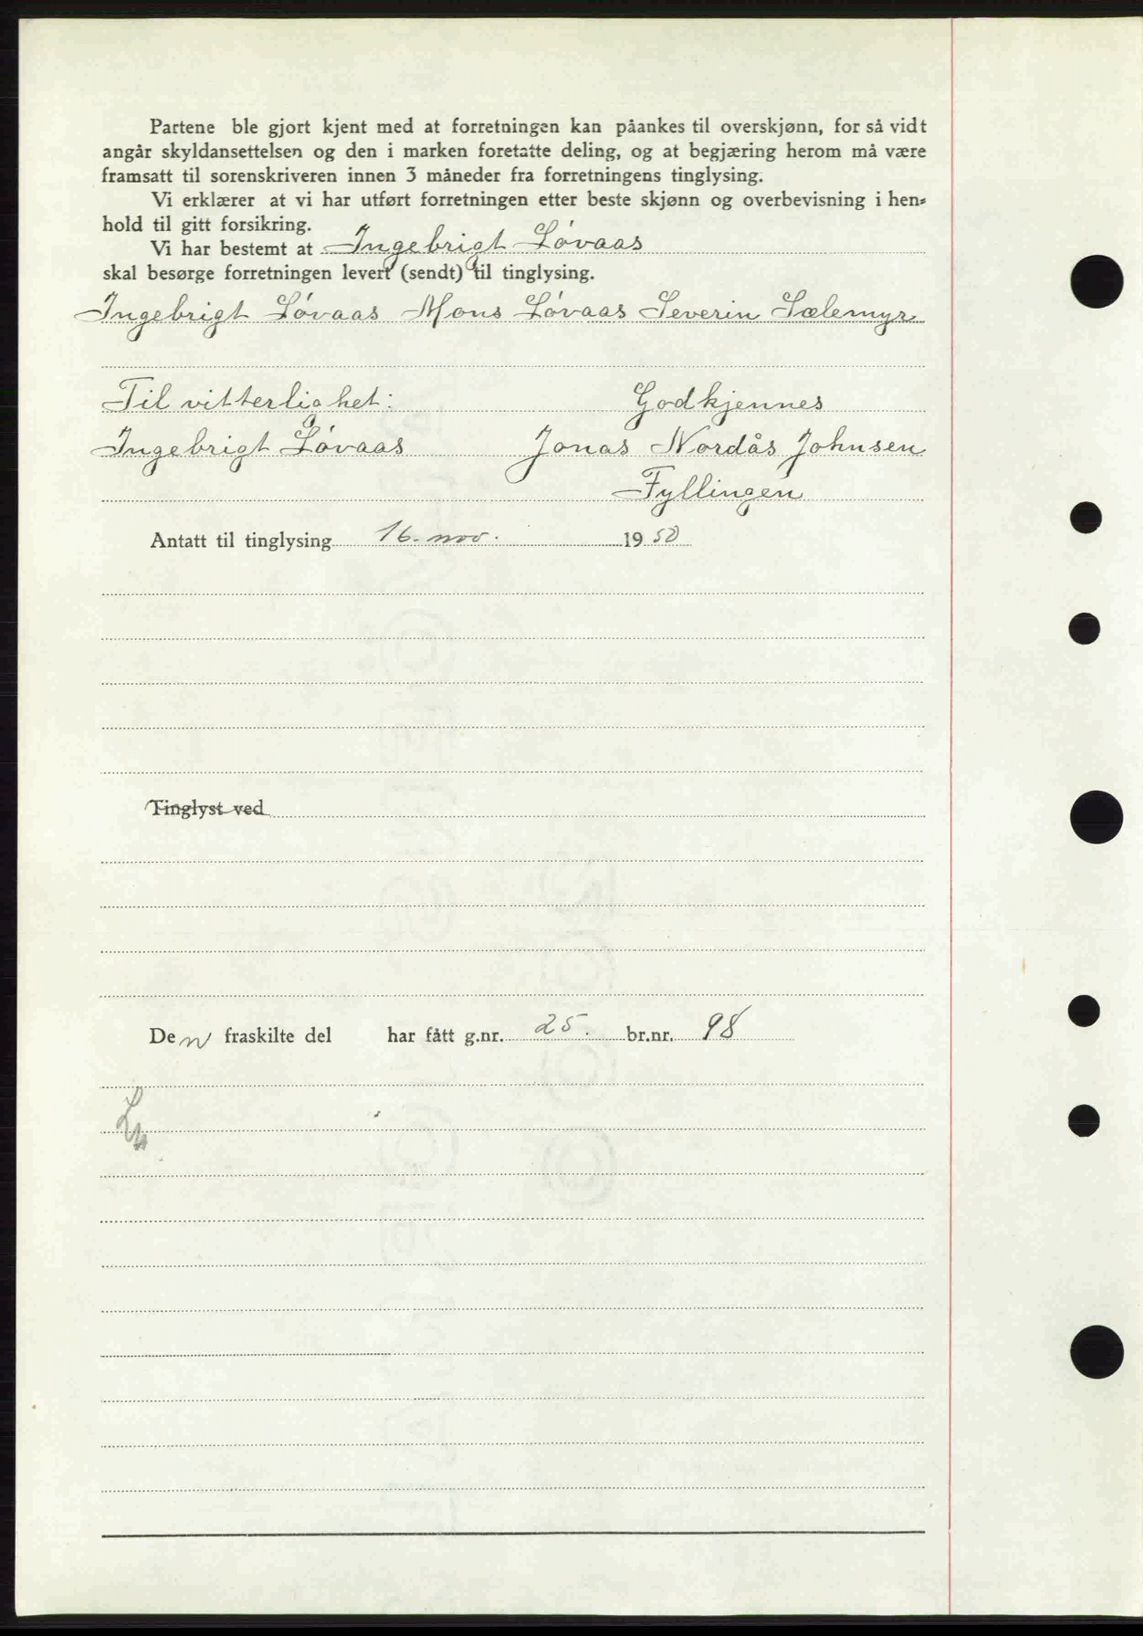 Partene ble gjort kjent med at forretningen kan påankes til overskjønn, for så vidt
angår skyldansettelsen og den i marken foretatte deling, og at begjæring herom må være
framsatt til sorenskriveren innen 3 måneder fra forretningens tinglysing.
Vi erklærer at vi har utført forretningen etter beste skjønn og overbevisning i hen-
hold til gitt forsikring.
Vi har bestemt at Ingebrigt Løvaas
skal besørge forretningen levert (sendt) til tinglysing.
Ingebrigt Løvaas Mons Løvaas Severin Sælemyr
Til vitterlighet: Godkjennes
Ingebrigt Løvaas Jonas Nordås Johnsen
Fyllingen
Antatt til tinglysing 16. nov. 1950
Tinglyst ved
Den fraskilte del har fått g.nr. 25. br.nr. 98